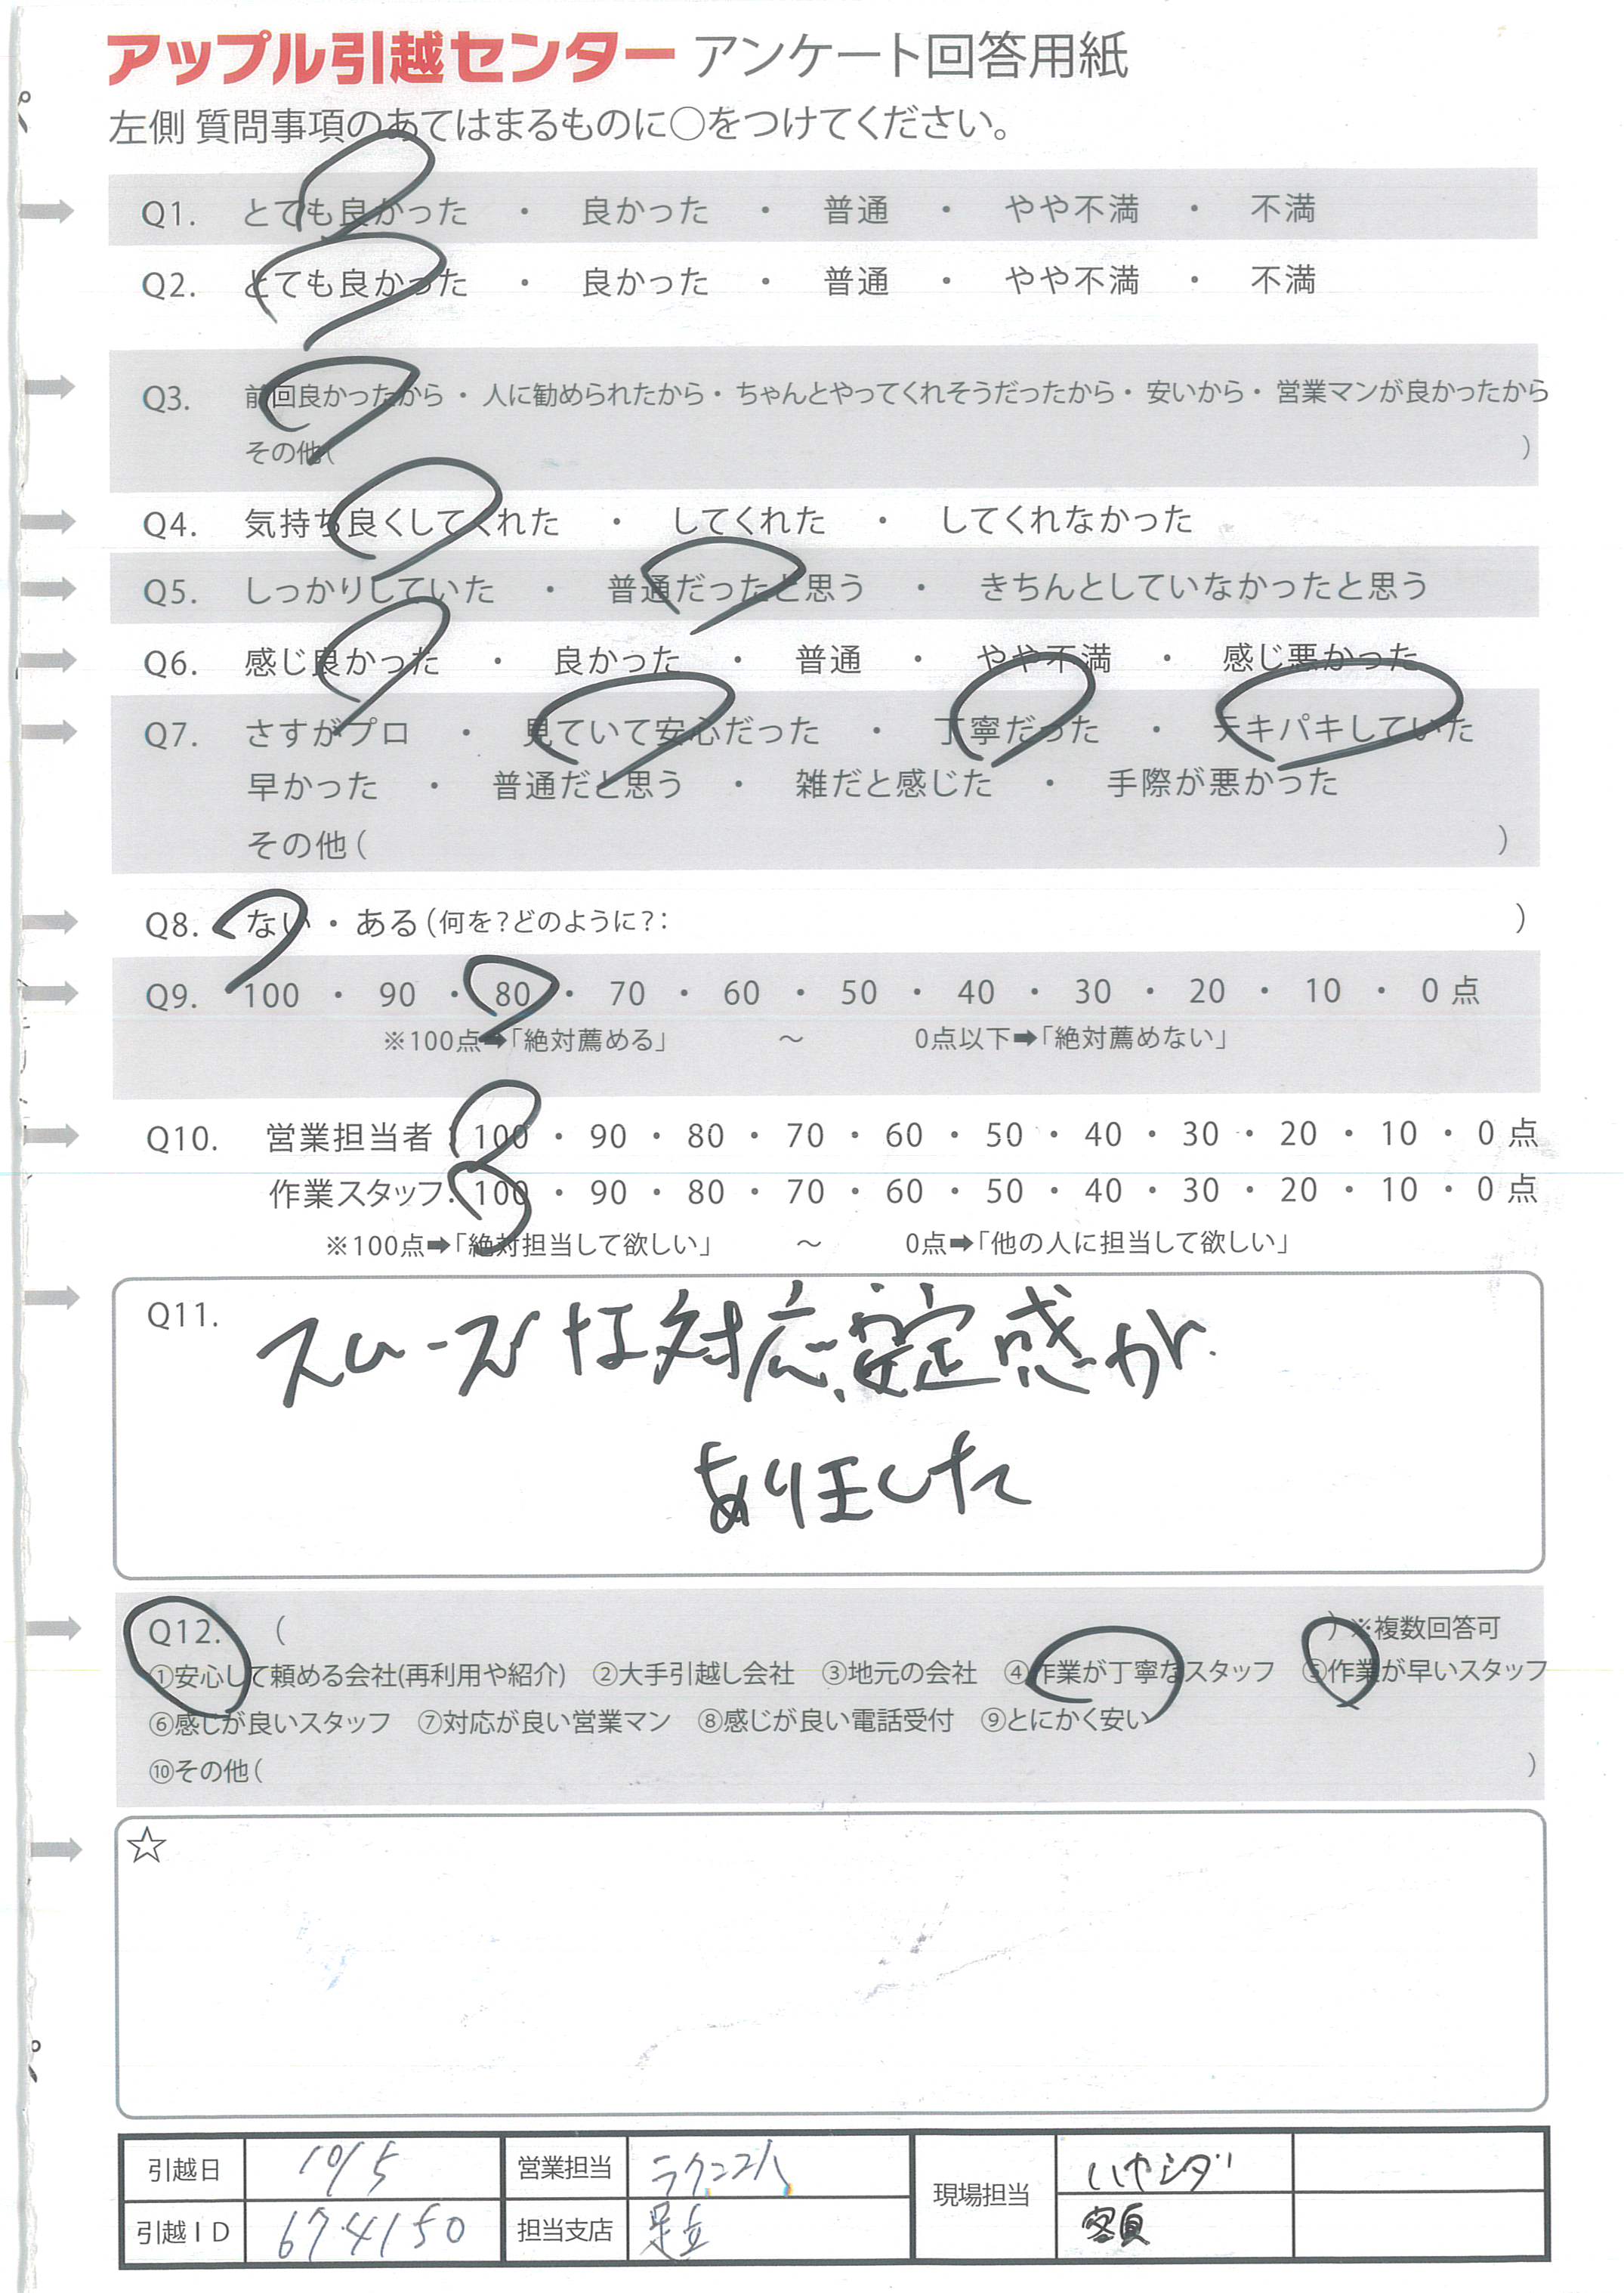 アップル引越センター アンケート回答用紙
左側 質問事項のあてはまるものに○をつけてください。
Q1. とても良かった ・ 良かった ・ 普通 ・ やや不満 ・ 不満
Q2. とても良かった ・ 良かった ・ 普通 ・ やや不満 ・ 不満
Q3. 前回良かったから ・ 人に勧められたから ・ ちゃんとやってくれそうだったから ・ 安いから ・ 営業マンが良かったから
その他( )
Q4. 気持ち良くしてくれた ・ してくれた ・ してくれなかった
Q5. しっかりしていた ・ 普通だったと思う ・ きちんとしていなかったと思う
Q6. 感じ良かった ・ 良かった ・ 普通 ・ やや不満 ・ 感じ悪かった
Q7. さすがプロ ・ 見ていて安心だった ・ 丁寧だった ・ テキパキしていた
早かった ・ 普通だと思う ・ 雑だと感じた ・ 手際が悪かった
その他( )
Q8. ない ・ ある(何を?どのように?: )
Q9. 100 ・ 90 ・ 80 ・ 70 ・ 60 ・ 50 ・ 40 ・ 30 ・ 20 ・ 10 ・ 0 点
※100点➡「絶対薦める」 ～ 0点以下➡「絶対薦めない」
Q10. 営業担当者 : 100 ・ 90 ・ 80 ・ 70 ・ 60 ・ 50 ・ 40 ・ 30 ・ 20 ・ 10 ・ 0 点
作業スタッフ: 100 ・ 90 ・ 80 ・ 70 ・ 60 ・ 50 ・ 40 ・ 30 ・ 20 ・ 10 ・ 0 点
※100点➡「絶対担当して欲しい」 ～ 0点➡「他の人に担当して欲しい」
Q11. スムーズな対応、安定感が
ありました
Q12. ( ) ※複数回答可
①安心して頼める会社(再利用や紹介) ②大手引越し会社 ③地元の会社 ④作業が丁寧なスタッフ ⑤作業が早いスタッフ
⑥感じが良いスタッフ ⑦対応が良い営業マン ⑧感じが良い電話受付 ⑨とにかく安い
⑩その他( )
☆
引越日 10/5 営業担当 現場担当
引越ID 674150 担当支店 足立